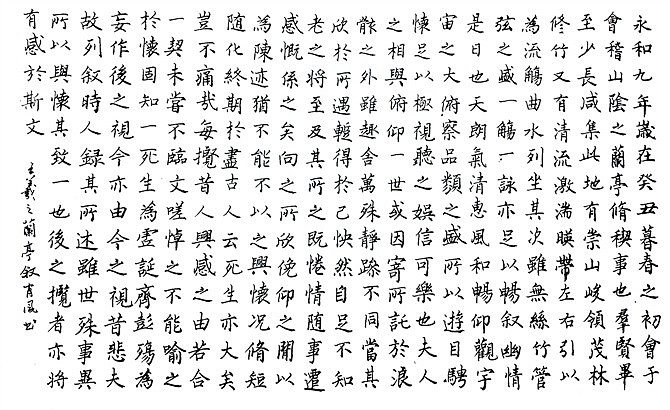 永和九年歲在癸丑暮春之初會于
會稽山陰之蘭亭脩禊事也羣賢畢
至少長咸集此地有崇山峻領茂林
修竹又有清流激湍暎帶左右引以
為流觴曲水列坐其次雖無絲竹管
弦之盛一觴一詠亦足以暢叙幽情
是日也天朗氣清惠風和暢仰觀宇
宙之大俯察品類之盛所以遊目騁
懷足以極視聽之娛信可樂也夫人
之相與俯仰一世或因寄所託於浪
骸之外雖趣舍萬殊靜躁不同當其
欣於所遇蹔得於己怏然自足不知
老之將至及其所之既惓情隨事遷
感慨係之矣向之所欣俛仰之閒以
為陳迹猶不能不以之興懷况脩短
隨化終期於盡古人云死生亦大矣
豈不痛哉每攬昔人興感之由若合
一契未嘗不臨文嗟悼之不能喻之
於懷固知一死生為虛誕齊彭殤為
妄作後之視今亦由今之視昔悲夫
故列叙時人録其所述雖世殊事異
所以興懷其致一也後之攬者亦將
有感於斯文
王羲之蘭亭叙肖风书